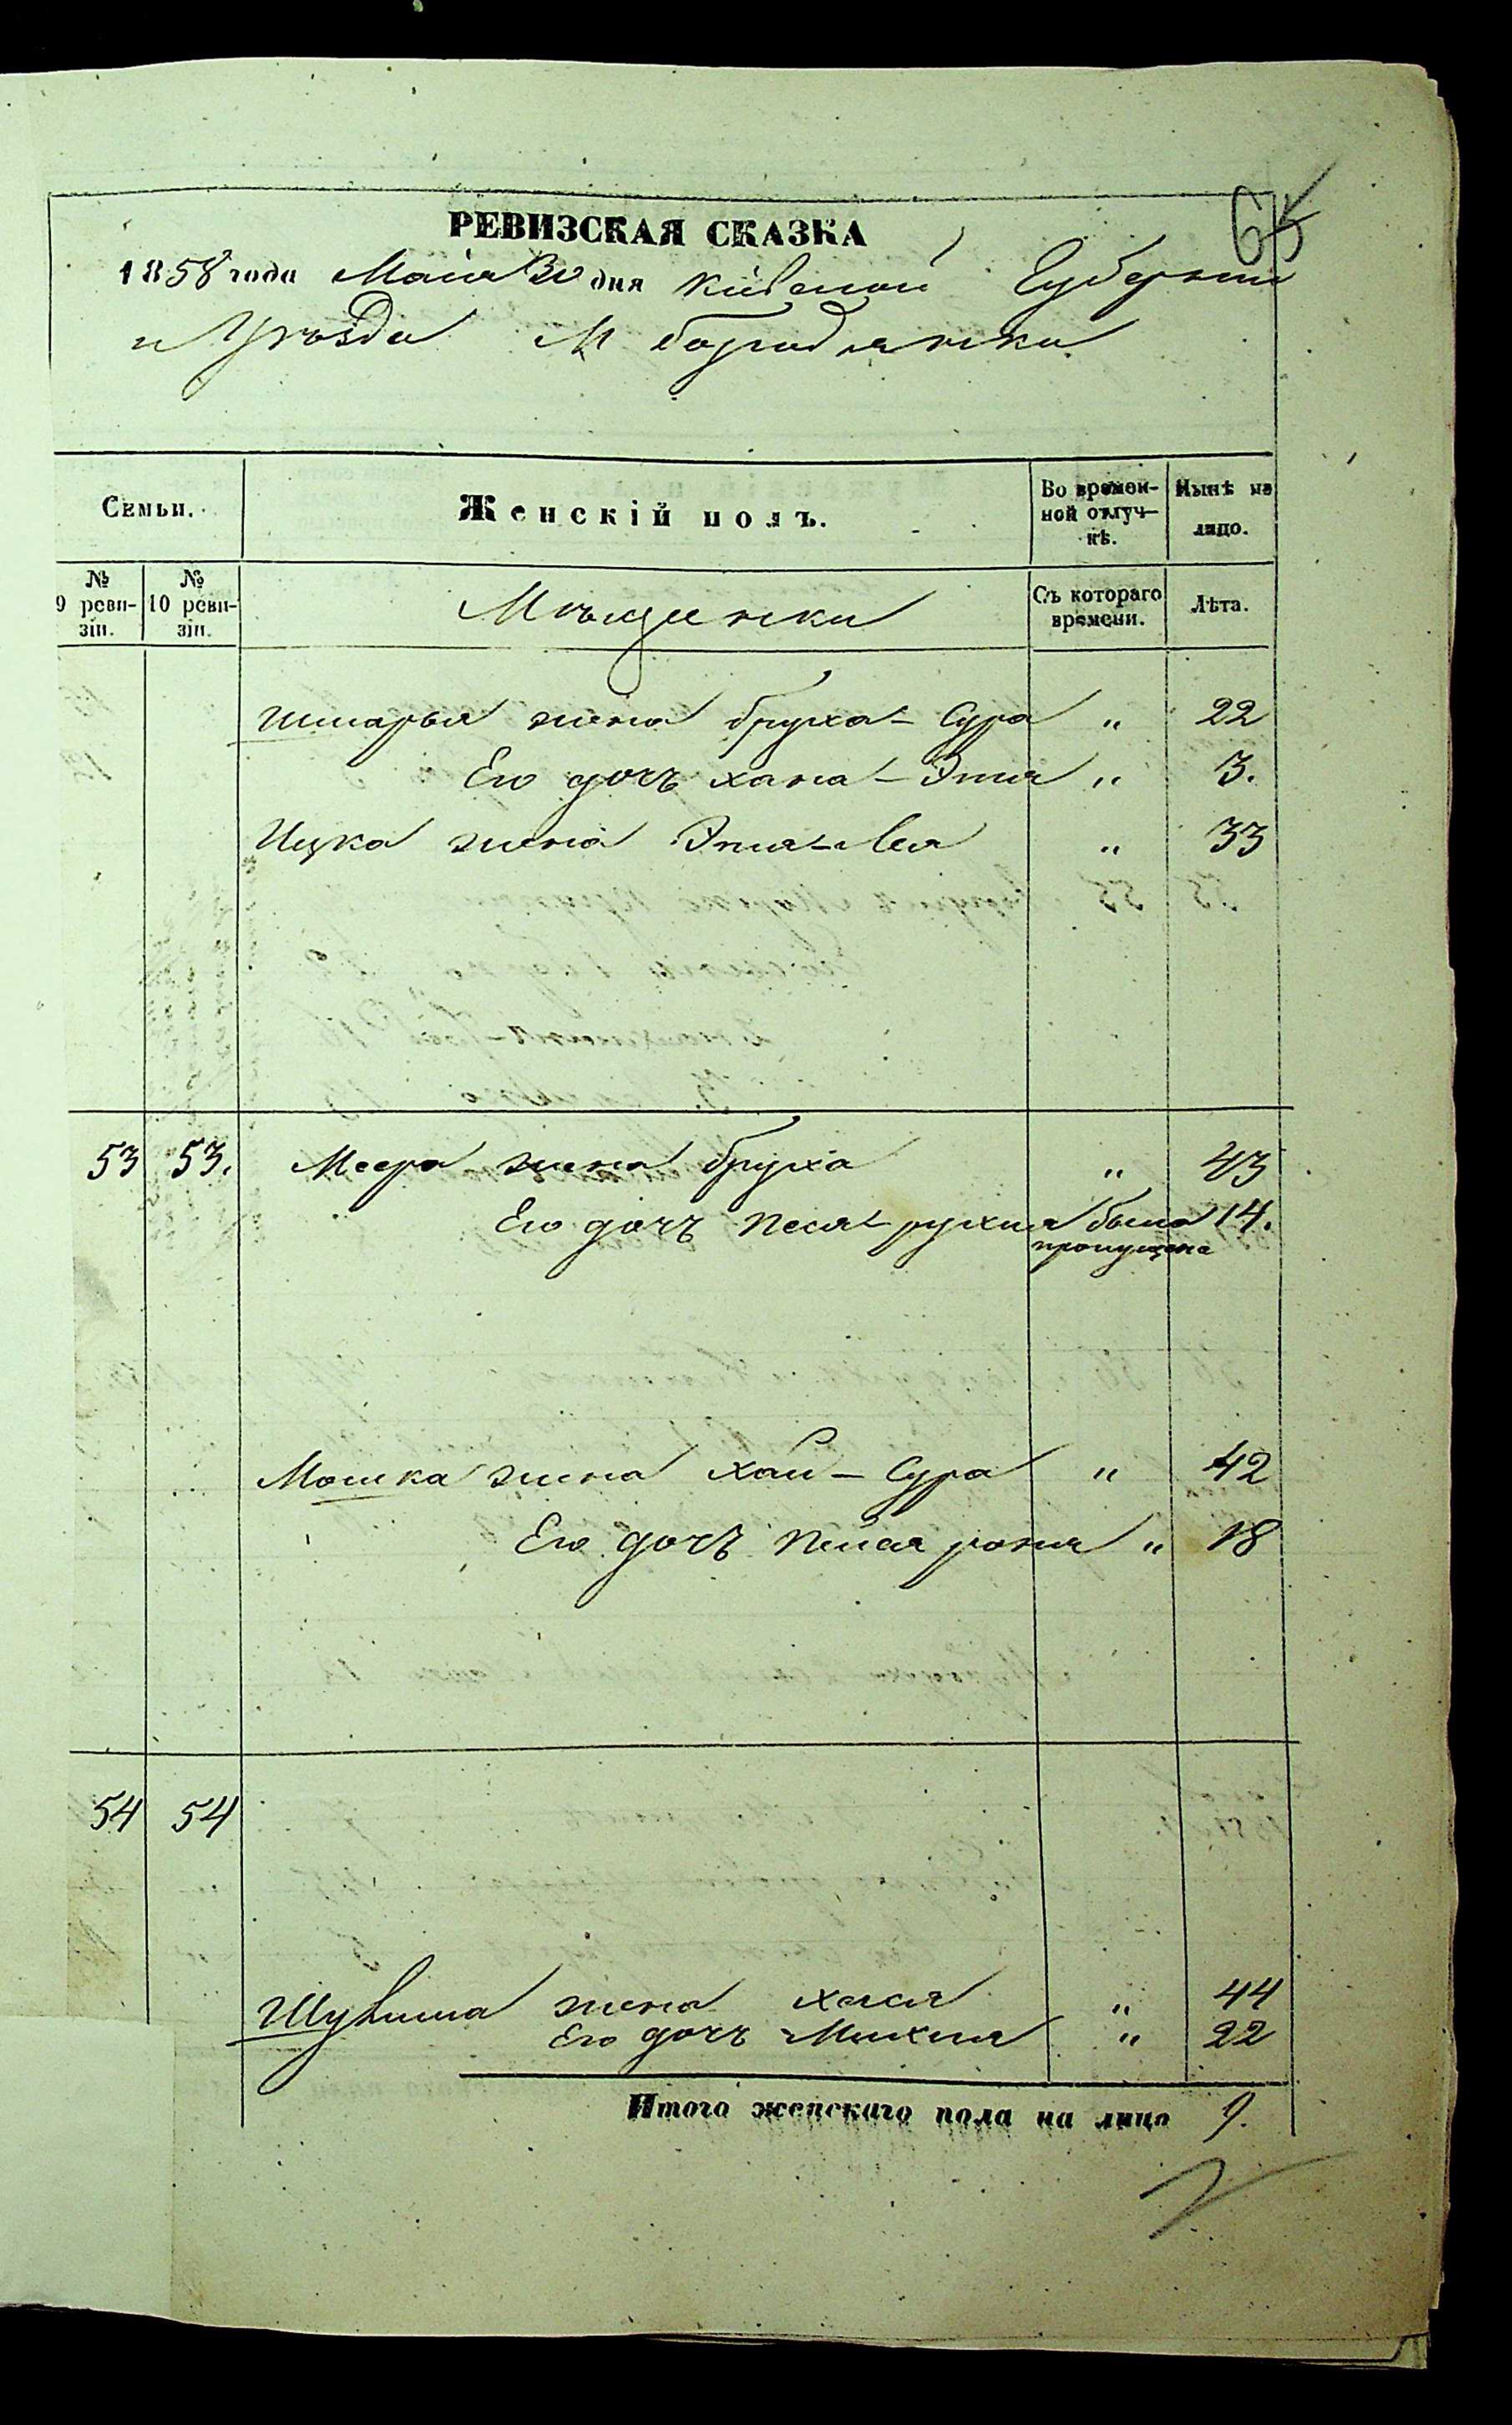 65
РЕВИЗСКАЯ СКАЗКА
1858 года Маiя 30 дня Кiевской Губернiи
и Уѣзда М Бородянки
Семьи.
Женскiй полъ.
Во времен-
ной отлуч-
кѣ.
Нынѣ на
лицо.
№
9 реви-
зiи.
№
10 реви-
зiи.
Мѣщанки
Съ котораго
времени.
Лѣта.
Шмарьи жена Бруха-Сура " 22
Его дочь Хана-Этя " 3.
Ицка жена Этя-Лея " 33
53 53. Меера жена Бруха " 43
Его дочь Песя-Рухля была 14.
пропущена
Мошка жена Хай-Сура " 42
Его дочь Пейся " 18
54 54
жена Хася " 44
Его дочь " 22
Итого женскаго пола на лицо 9.